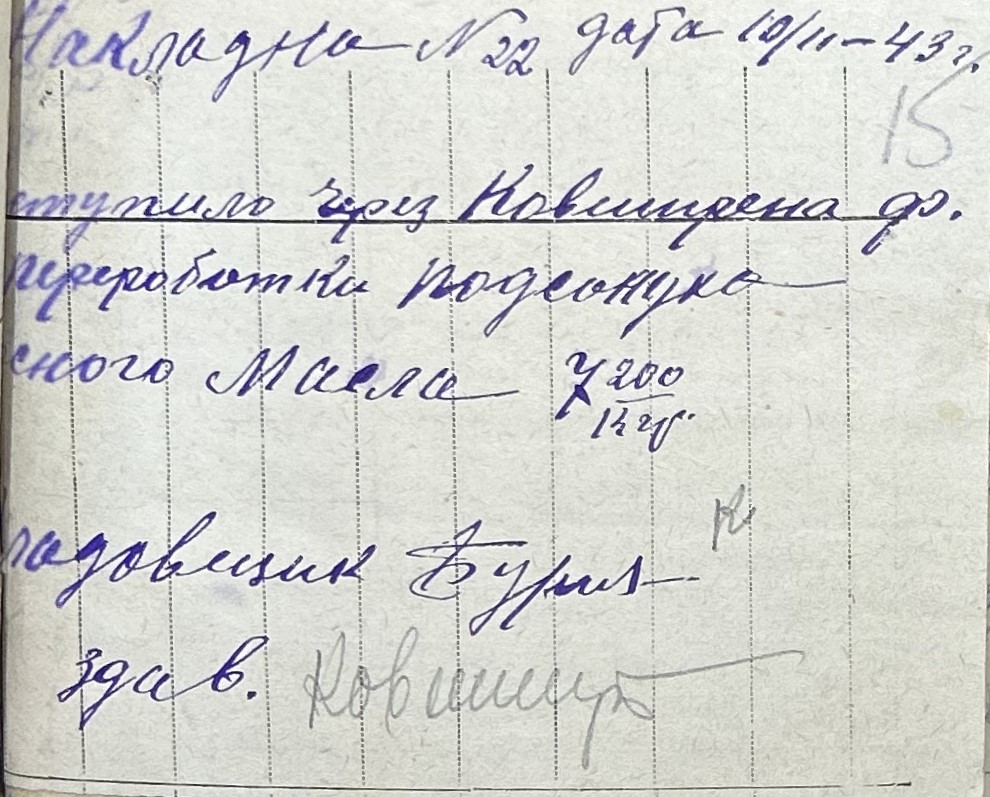 Накладна № 22 дата 10/11-43 г.
15
ступило через Ковширена Ф.
переработки подсонуха
сного Масла 7 200
кгр.
ладовщик Буря
К
здав. Ковшир